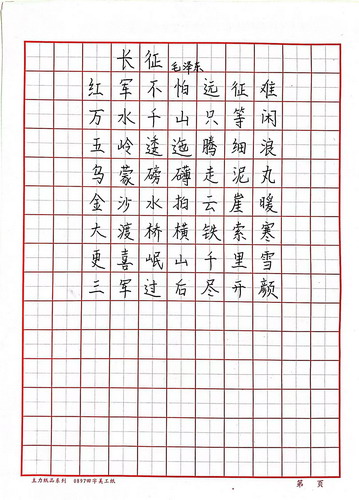 长征
毛泽东
红军不怕远征难
万水千山只等闲
五岭逶迤腾细浪
乌蒙磅礴走泥丸
金沙水拍云崖暖
大渡桥横铁索寒
更喜岷山千里雪
三军过后尽开颜
主力纸品系列 8897田字美工纸
第 页